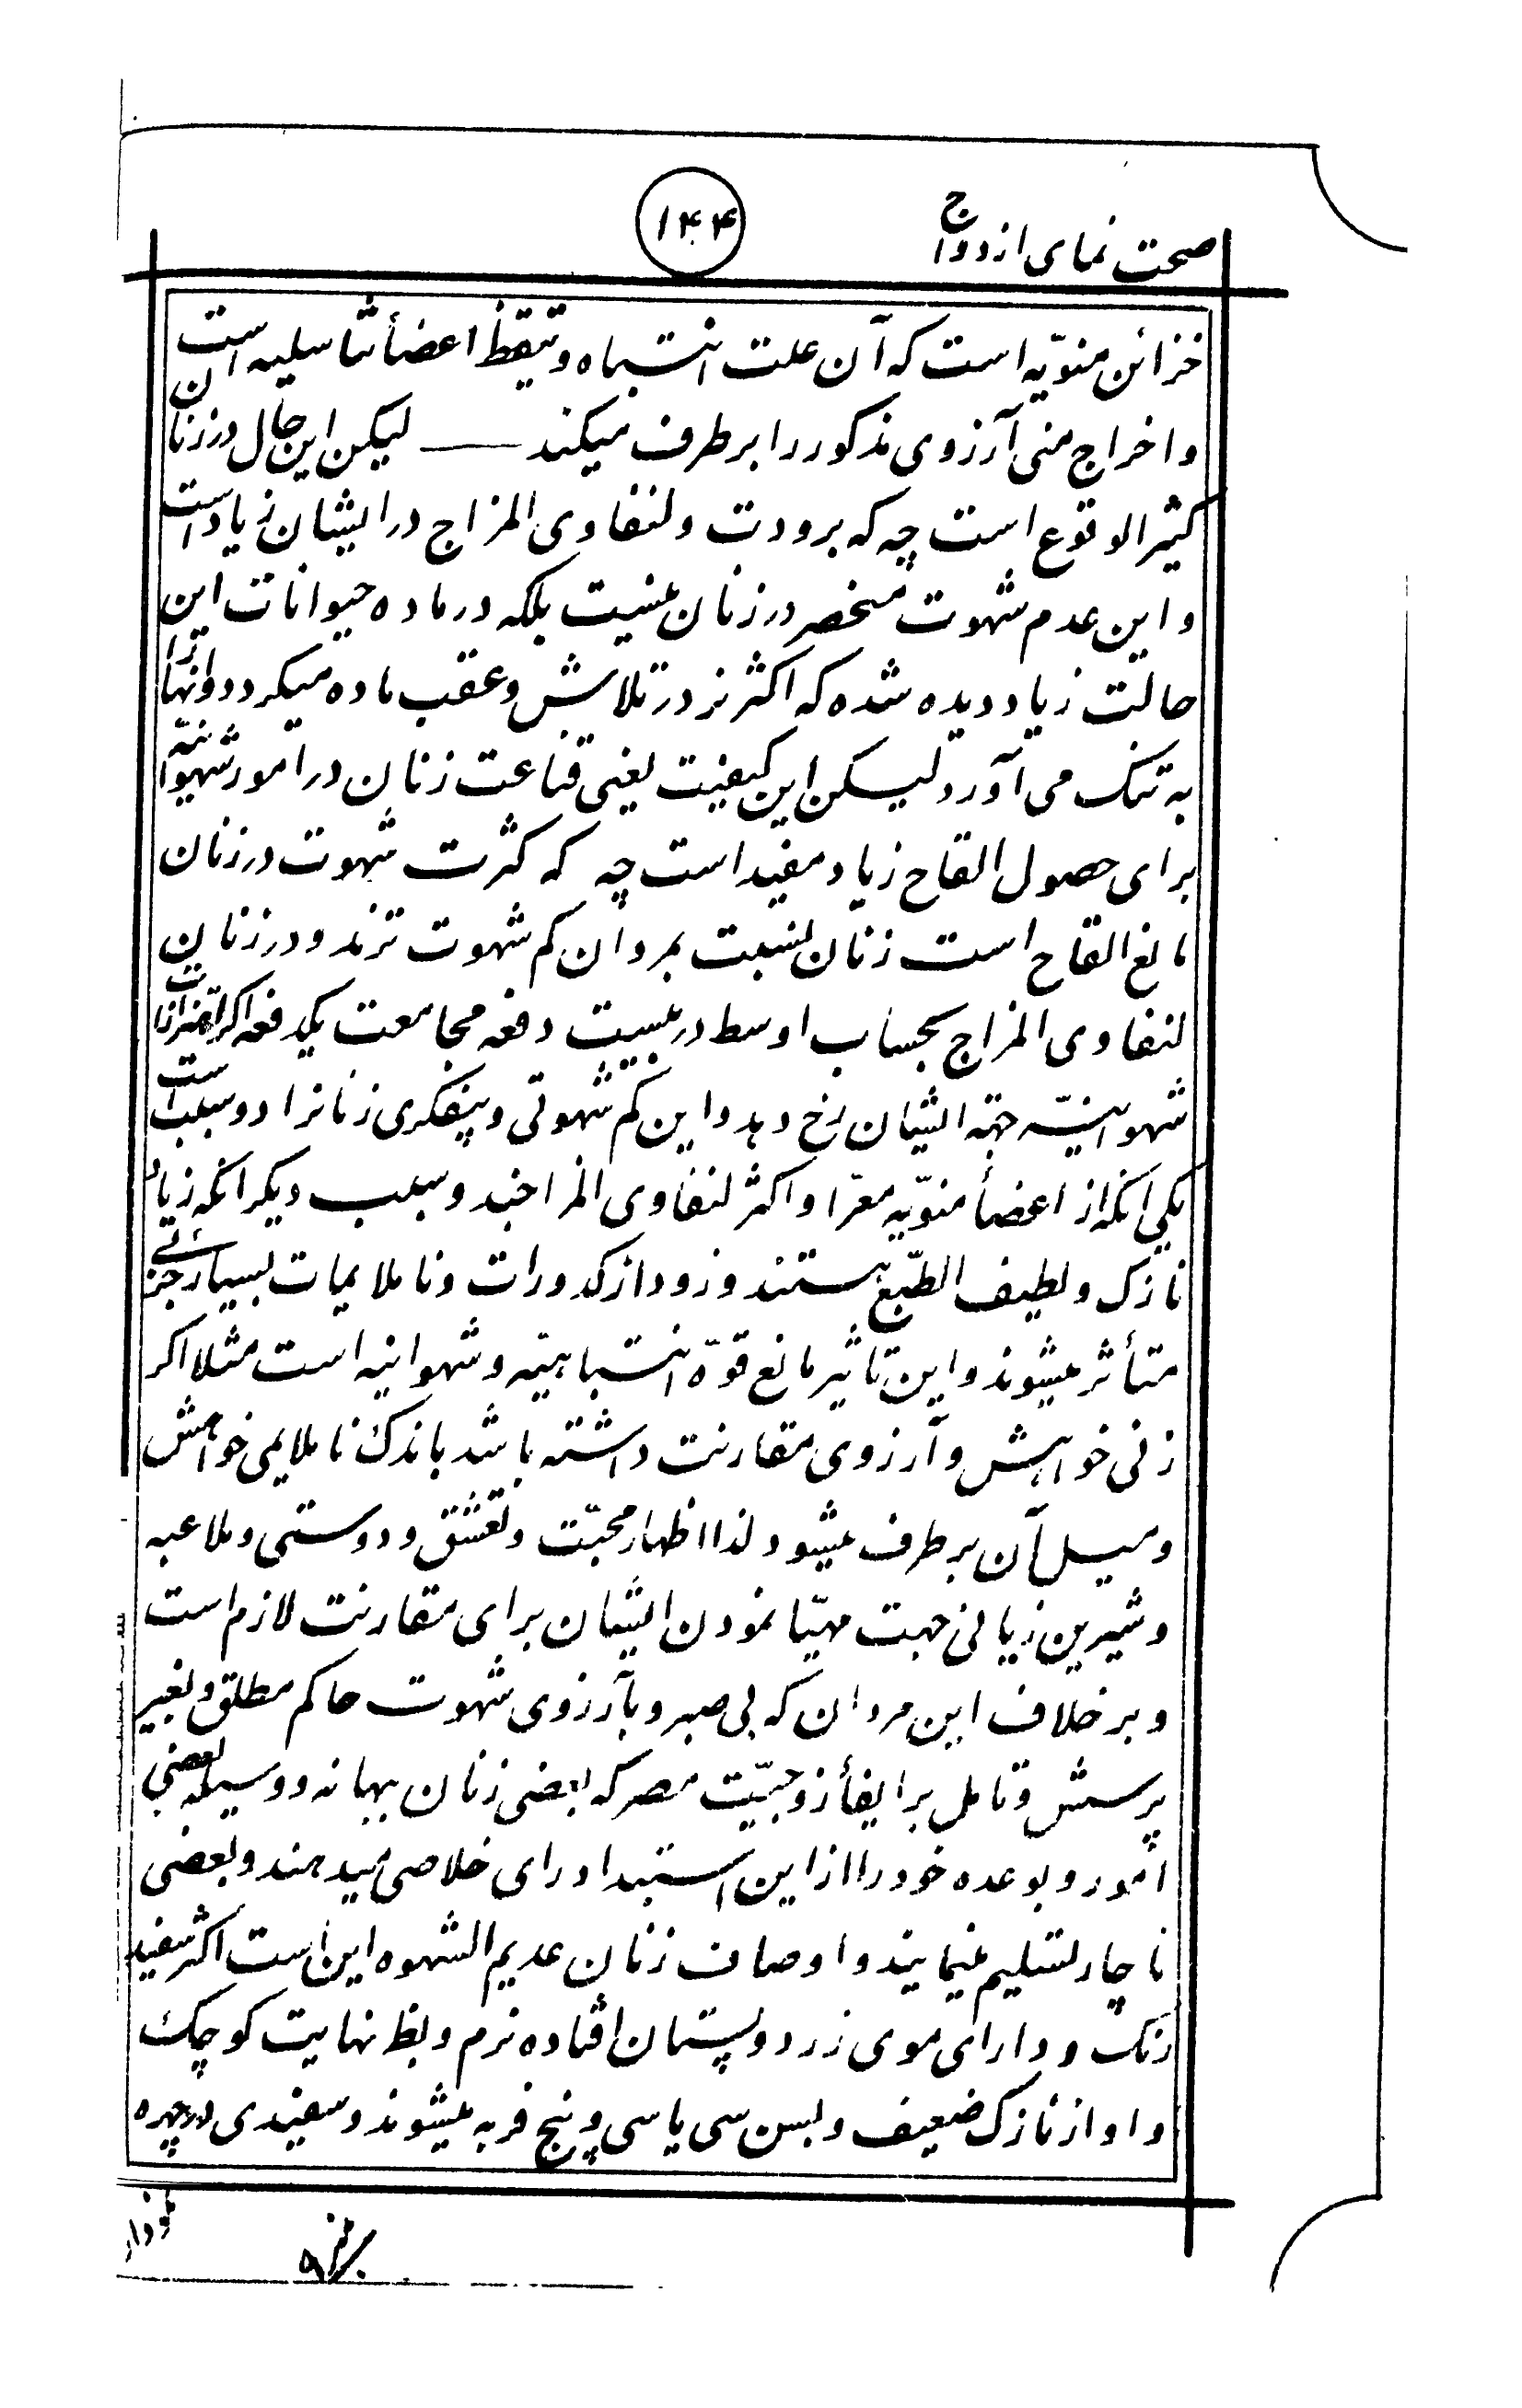 صحت نمای ازدواج
۱۴۴
خزائن منویّه است که آن علت انتباه و تیقظ اعضأ تناسلیه است
و اخراج منی آرزوی مذکور را برطرف میکند — لیکن این حال در زنان
کثیر الوقوع است چه که برودت و لنفاوی المزاج در ایشان زیاد است
و این عدم شهوت منحصر در زنان نیست بلکه در ماده حیوانات این
حالت زیاد دیده شده که اکثر نر در تلاش و عقب ماده میگردد و انها را
به تنک می آورد لیکن این کیفیت یعنی قناعت زنان در امور شهوانیّه
برای حصول القاح زیاد مفید است چه که کثرت شهوت در زنان
مانع القاح است زنان نسبت بمردان کم شهوت ترند و در زنان
لنفاوی المزاج بحساب اوسط در بیست دفعه مجامعت یکدفعه اکر اهتزازات
شهوانیّه جهته ایشان رخ دهد و این کم شهوتی و بیفکری زنانرا دو سبب است
یکی انکه از اعضأ منویّه معرّا و اکثر لنفاوی المزاجند و سبب دیکر انکه زیاد
نازک و لطیف الطبع هستند و زود از کدورات و ناملایمات بسیار جزئی
متأثر میشوند و این تاثیر مانع قوّه انتباهیّه و شهوانیه است مثلا اکر
زنی خواهش و آرزوی مقارنت داشته باشد باندک ناملایمی خواهش
و میل آن برطرف میشود لذا اظهار محبّت و تعشق و دوستی و ملاعبه
و شیرین زبانی جهت مهیّا نمودن ایشان برای مقارنت لازم است
و بر خلاف این مردان که بی صبر و بآرزوی شهوت حاکم مطلق و بغیر
پرسش و تامل بر ایفأ زوجیّت مصر که بعضی زنان ببهانه و وسیله بعضی
امور و بوعده خود را از این استبداد رای خلاصی میدهند و بعضی
ناچار تسلیم مینمایند و اوصاف زنان عدیم الشهوه این است اکثر سفید
رنک و دارای موی زرد و پستان افتاده نرم و بظ نهایت کوچک
و اواز نازک ضعیف و بسن سی یا سی و پنج فربه میشوند و سفیدی در چهره
نمودار